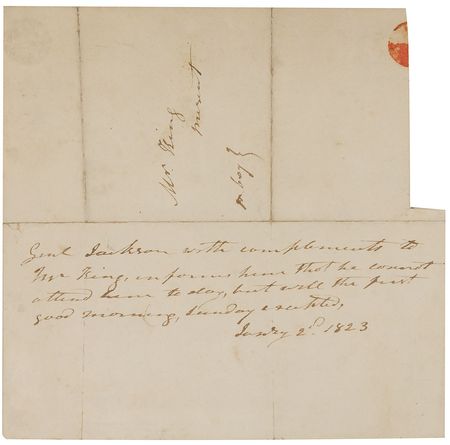 Mr King
present
p boy
Genl Jackson with complements to
Mr King, informs him that he cannot
attend him to day, but will the first
good morning, Sunday excepted,
Janry 2d. 1823